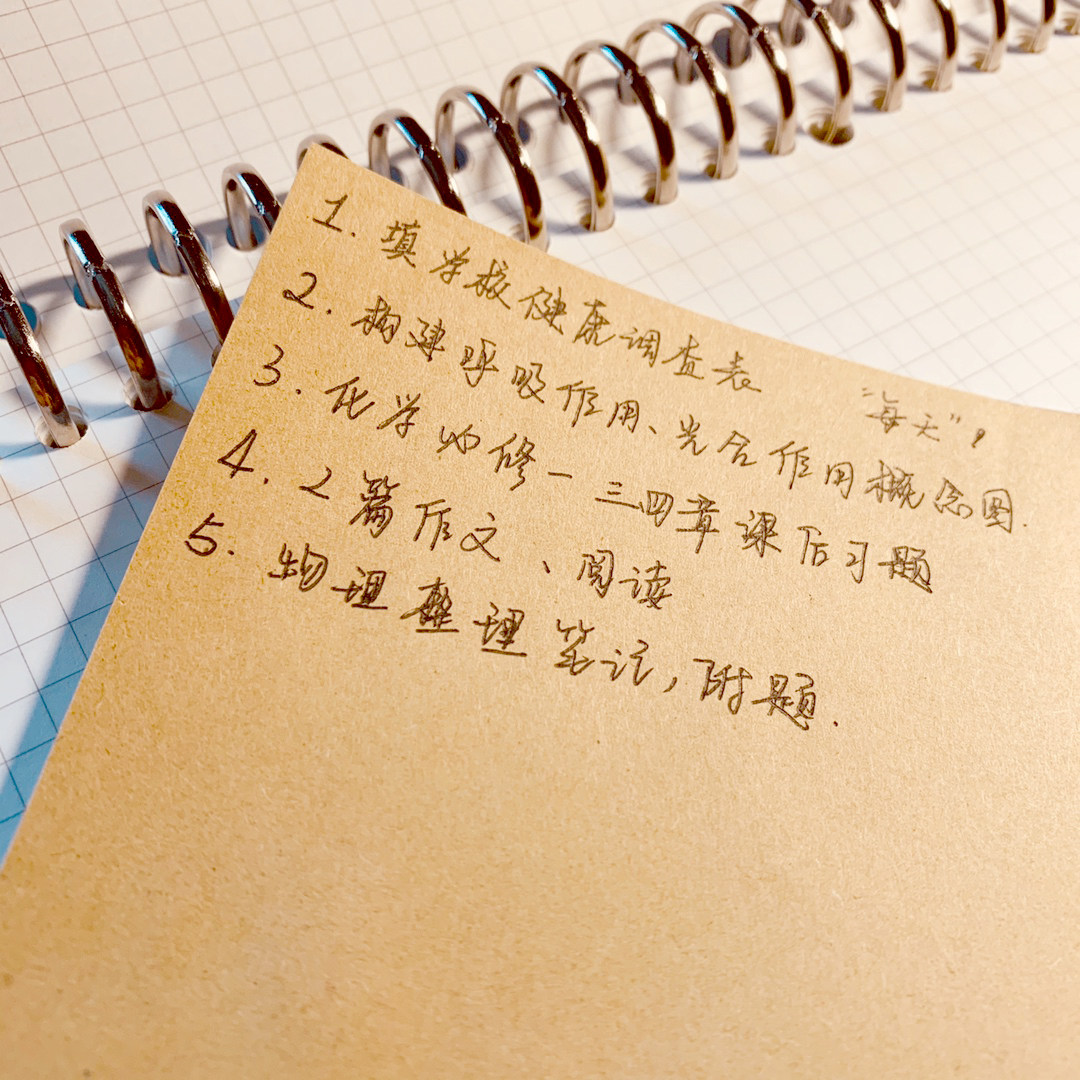 1. 填学校健康调查表 "每天",
2. 构建呼吸作用、光合作用概念图.
3. 化学必修一 三四章课后习题
4. 2篇作文、阅读
5. 物理整理笔记, 附题.